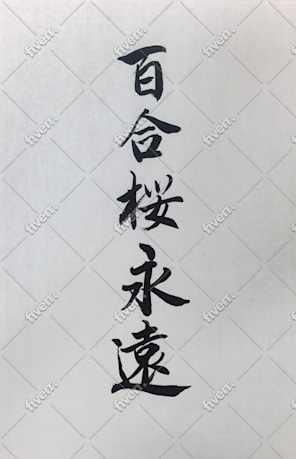 百合桜永遠